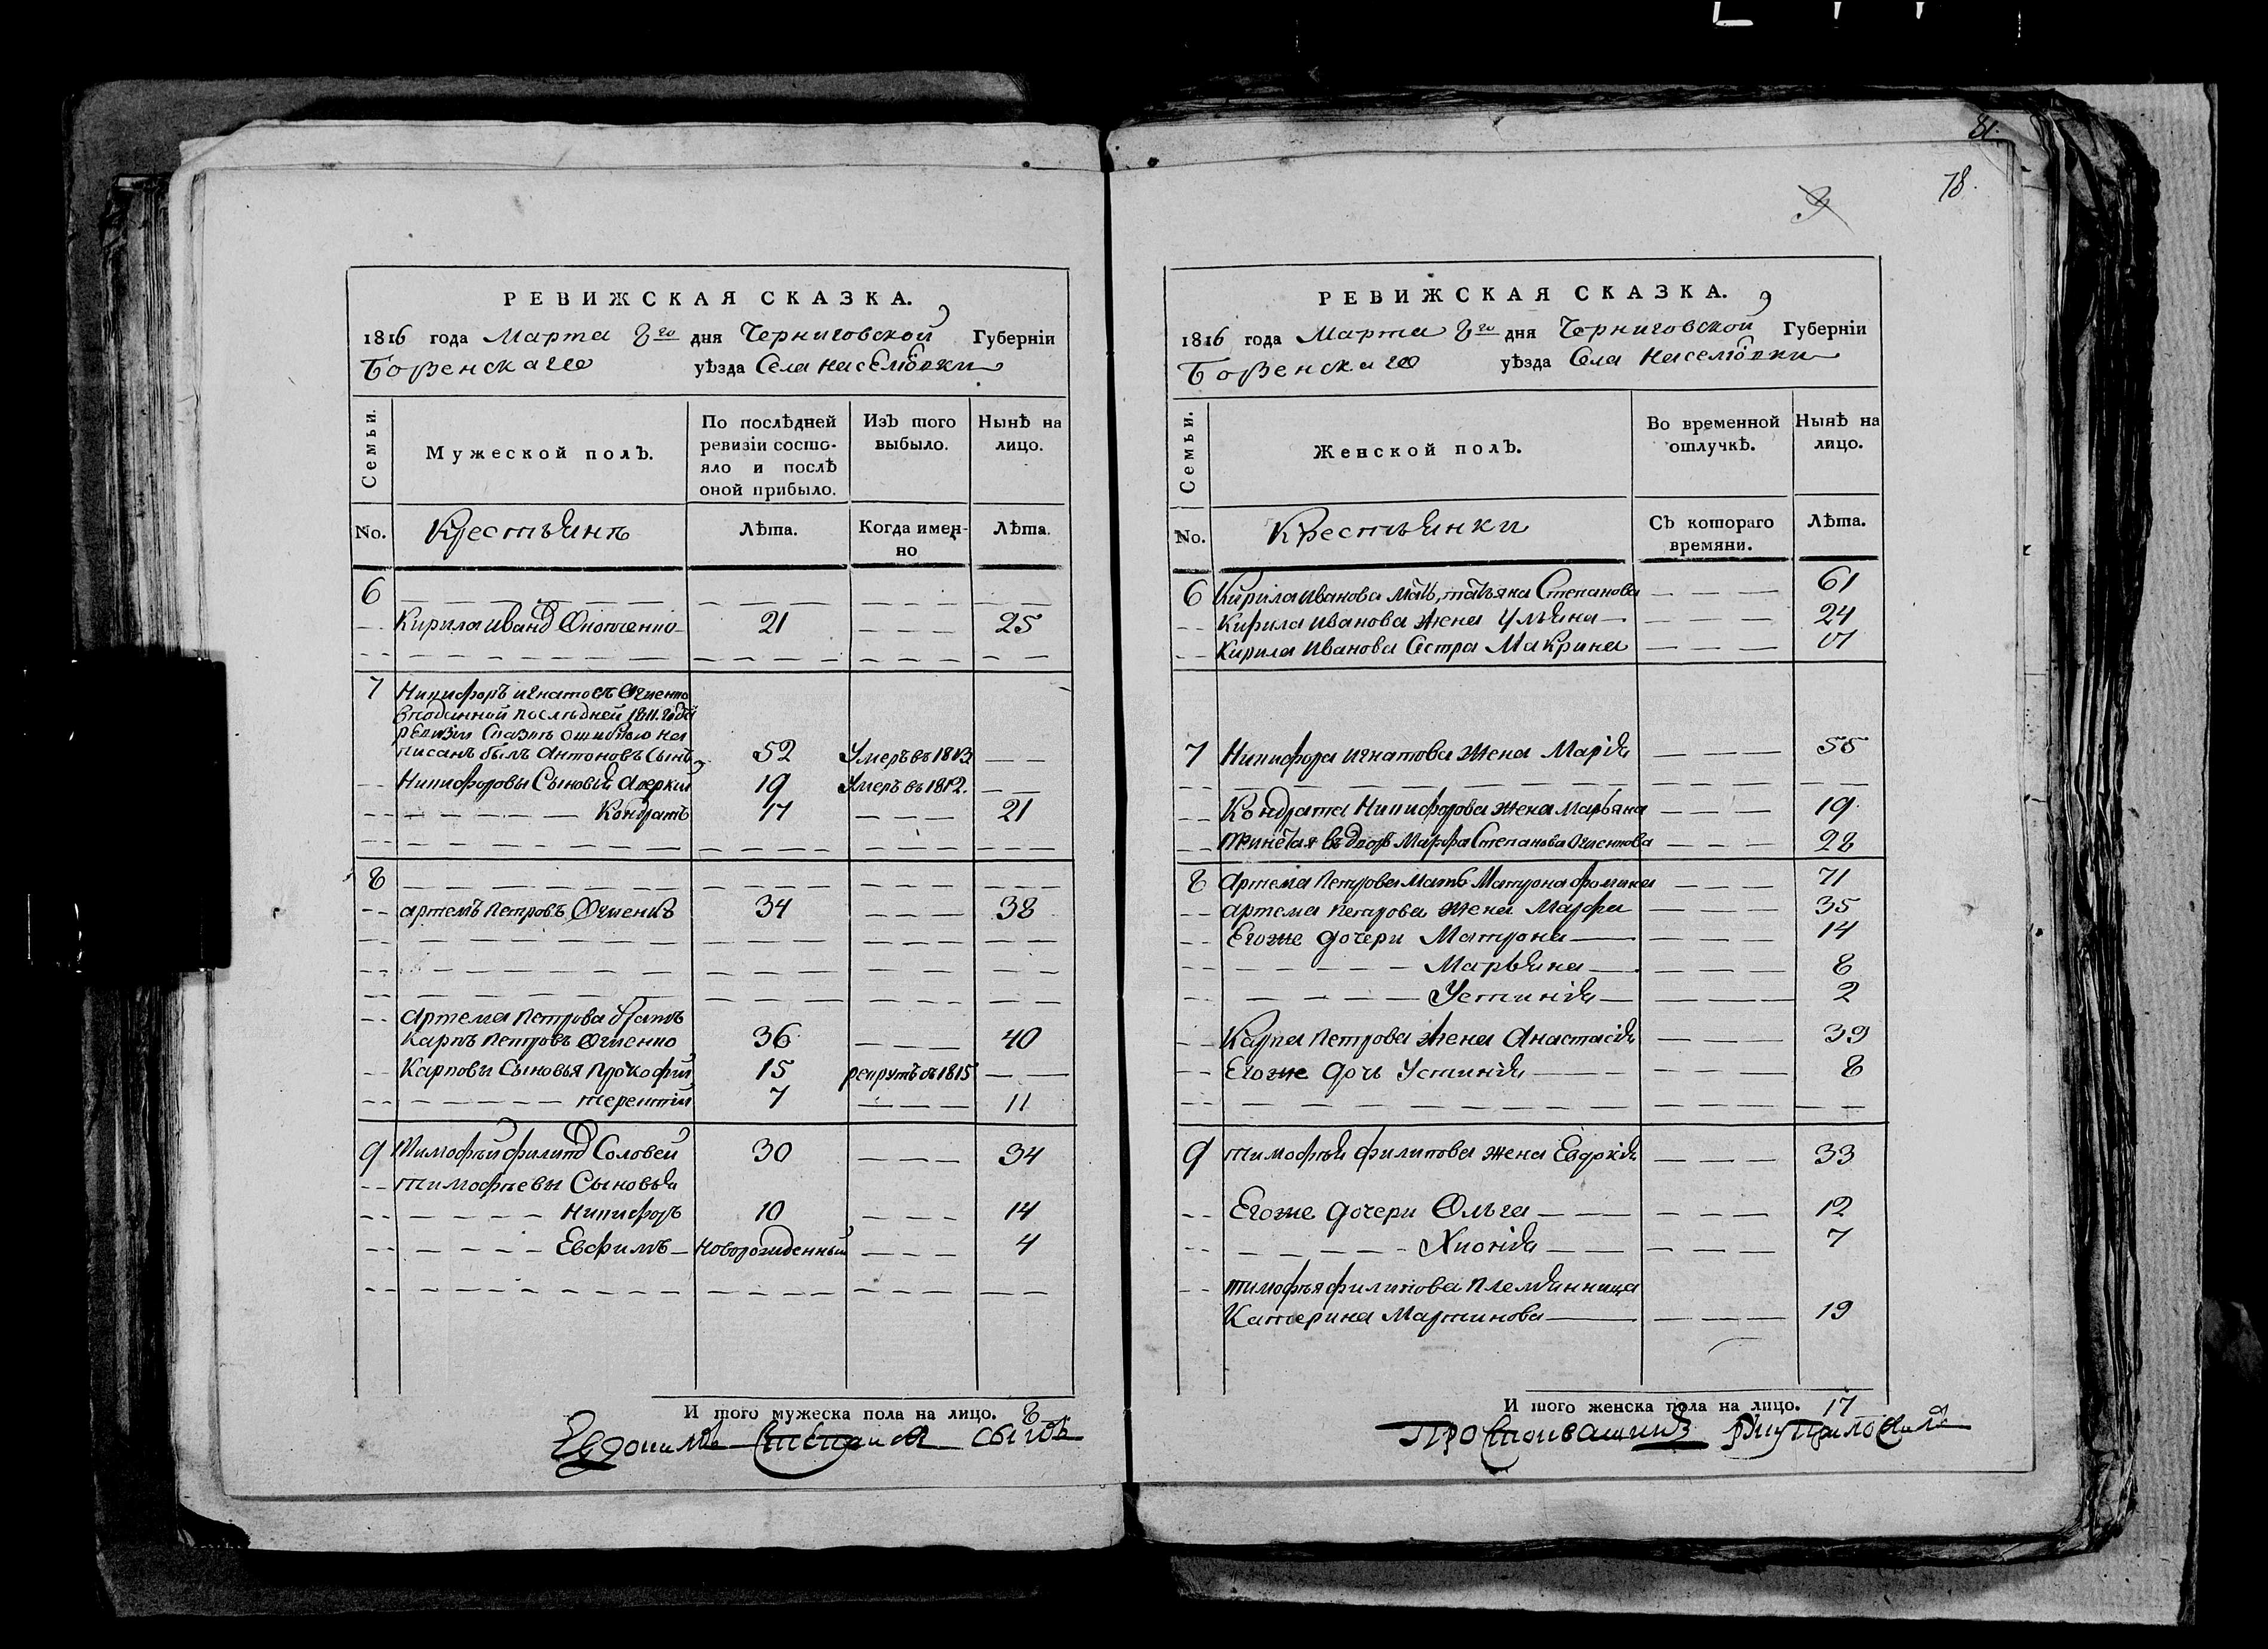 81.
78.
РЕВИЖСКАЯ СКАЗКА.
1816 года Марта 8го дня Черниговской Губерніи
Борзенскаго уѣзда Села
Семьи.
Мужеской полъ.
По послѣдней ревизіи состо-
яло и послѣ
оной прибыло.
Изъ того
выбыло.
Нынѣ на
лицо.
No. Крестьянъ Лѣта. Когда имен-
но Лѣта.
6
Кирила Иванов 21 25
7 Никифоръ Игнатовъ
последней 1811 года
ревизіи Сказкѣ ошибкою на
писанъ былъ Антоновъ Сынъ 52 Умеръ въ 1813
Никифоровы Сыновья Аверкий 19 Умеръ въ 1812.
Кондратъ 17 21
8
Артемъ Петровъ 34 38
Артема Петрова братъ
Карпъ Петровъ 36 40
Карповы Сыновья Прокофий 15 рекрутъ въ 1815
Терентий 7 11
9 Тимофей Филипов Соловей 30 34
Тимофеевы Сыновья
Никифоръ 10 14
Евфимъ Новорожденный 4
И того мужеска пола на лицо. 8
РЕВИЖСКАЯ СКАЗКА.
1816 года Марта 8го дня Черниговской Губерніи
Борзенскаго уѣзда Села
Семьи.
Женской полъ.
Во временной
отлучкѣ.
Нынѣ на
лицо.
No. Крестьянки Съ котораго
времяни. Лѣта.
6 Кирила Иванова мать, Татьяна Степанова 61
Кирила Иванова жена Ульяна 24
Кирила Иванова Сестра Макрина
7 Никифора Игнатова жена Марія 55
Кондрата Никифорова жена Марьяна 19
Марфа Степанова 28
8 Артема Петрова Мать Матрона Фомина 71
Артема Петрова жена Марфа 35
Егоже дочери Матрона 14
Марьяна 8
Устинія 2
Карпа Петрова жена Анастасія 39
Егоже дочь Устинія 8
9 Тимофея Филипова жена Евдокія 33
Егоже дочери Ольга 12
Хионія 7
Тимофея Филипова племянница
Катерина Мартинова 19
И того женска пола на лицо. 17